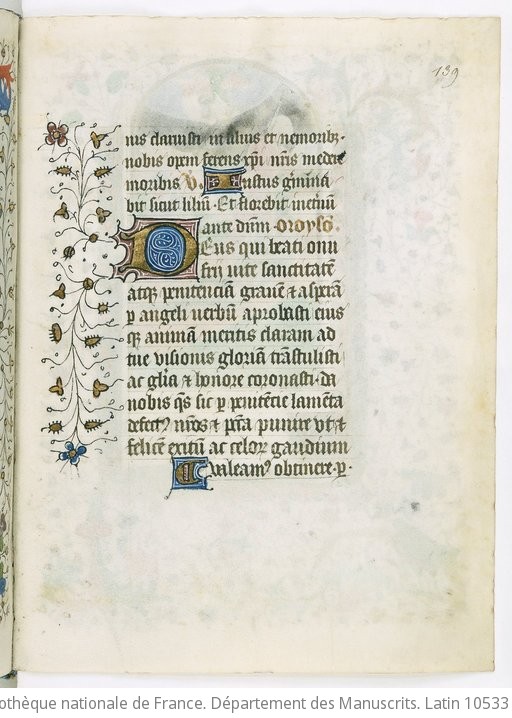 139
nis claruisti ut alius et nemoribꝫ.
nobis opem ferens xp̄i nr̄is medere
moribis V. Iustus gͥminà
bit sicut liliū. Et florebit inet̄nū
ante dūm. Oroyson.
Deus qui beati onu
frij uite sanctitatē
atqꝫ penitenciā grauē ⁊ asperā
ꝑ angeli uerbū aprobasti eius
qꝫ animā meritis claram ad
tue visionis gloriā trāstulisti
ac glīa ⁊ honore coronasti. da
nobis qs̄ sic ꝑ penitēcie lamēta
defectꝰ nr̄os ⁊ pc̄ta punire vt ⁊
felicē exitū ac celoꝝ gaudium
valeamꝰ obtinere. ꝑ.
othèque nationale de France. Département des Manuscrits. Latin 10533